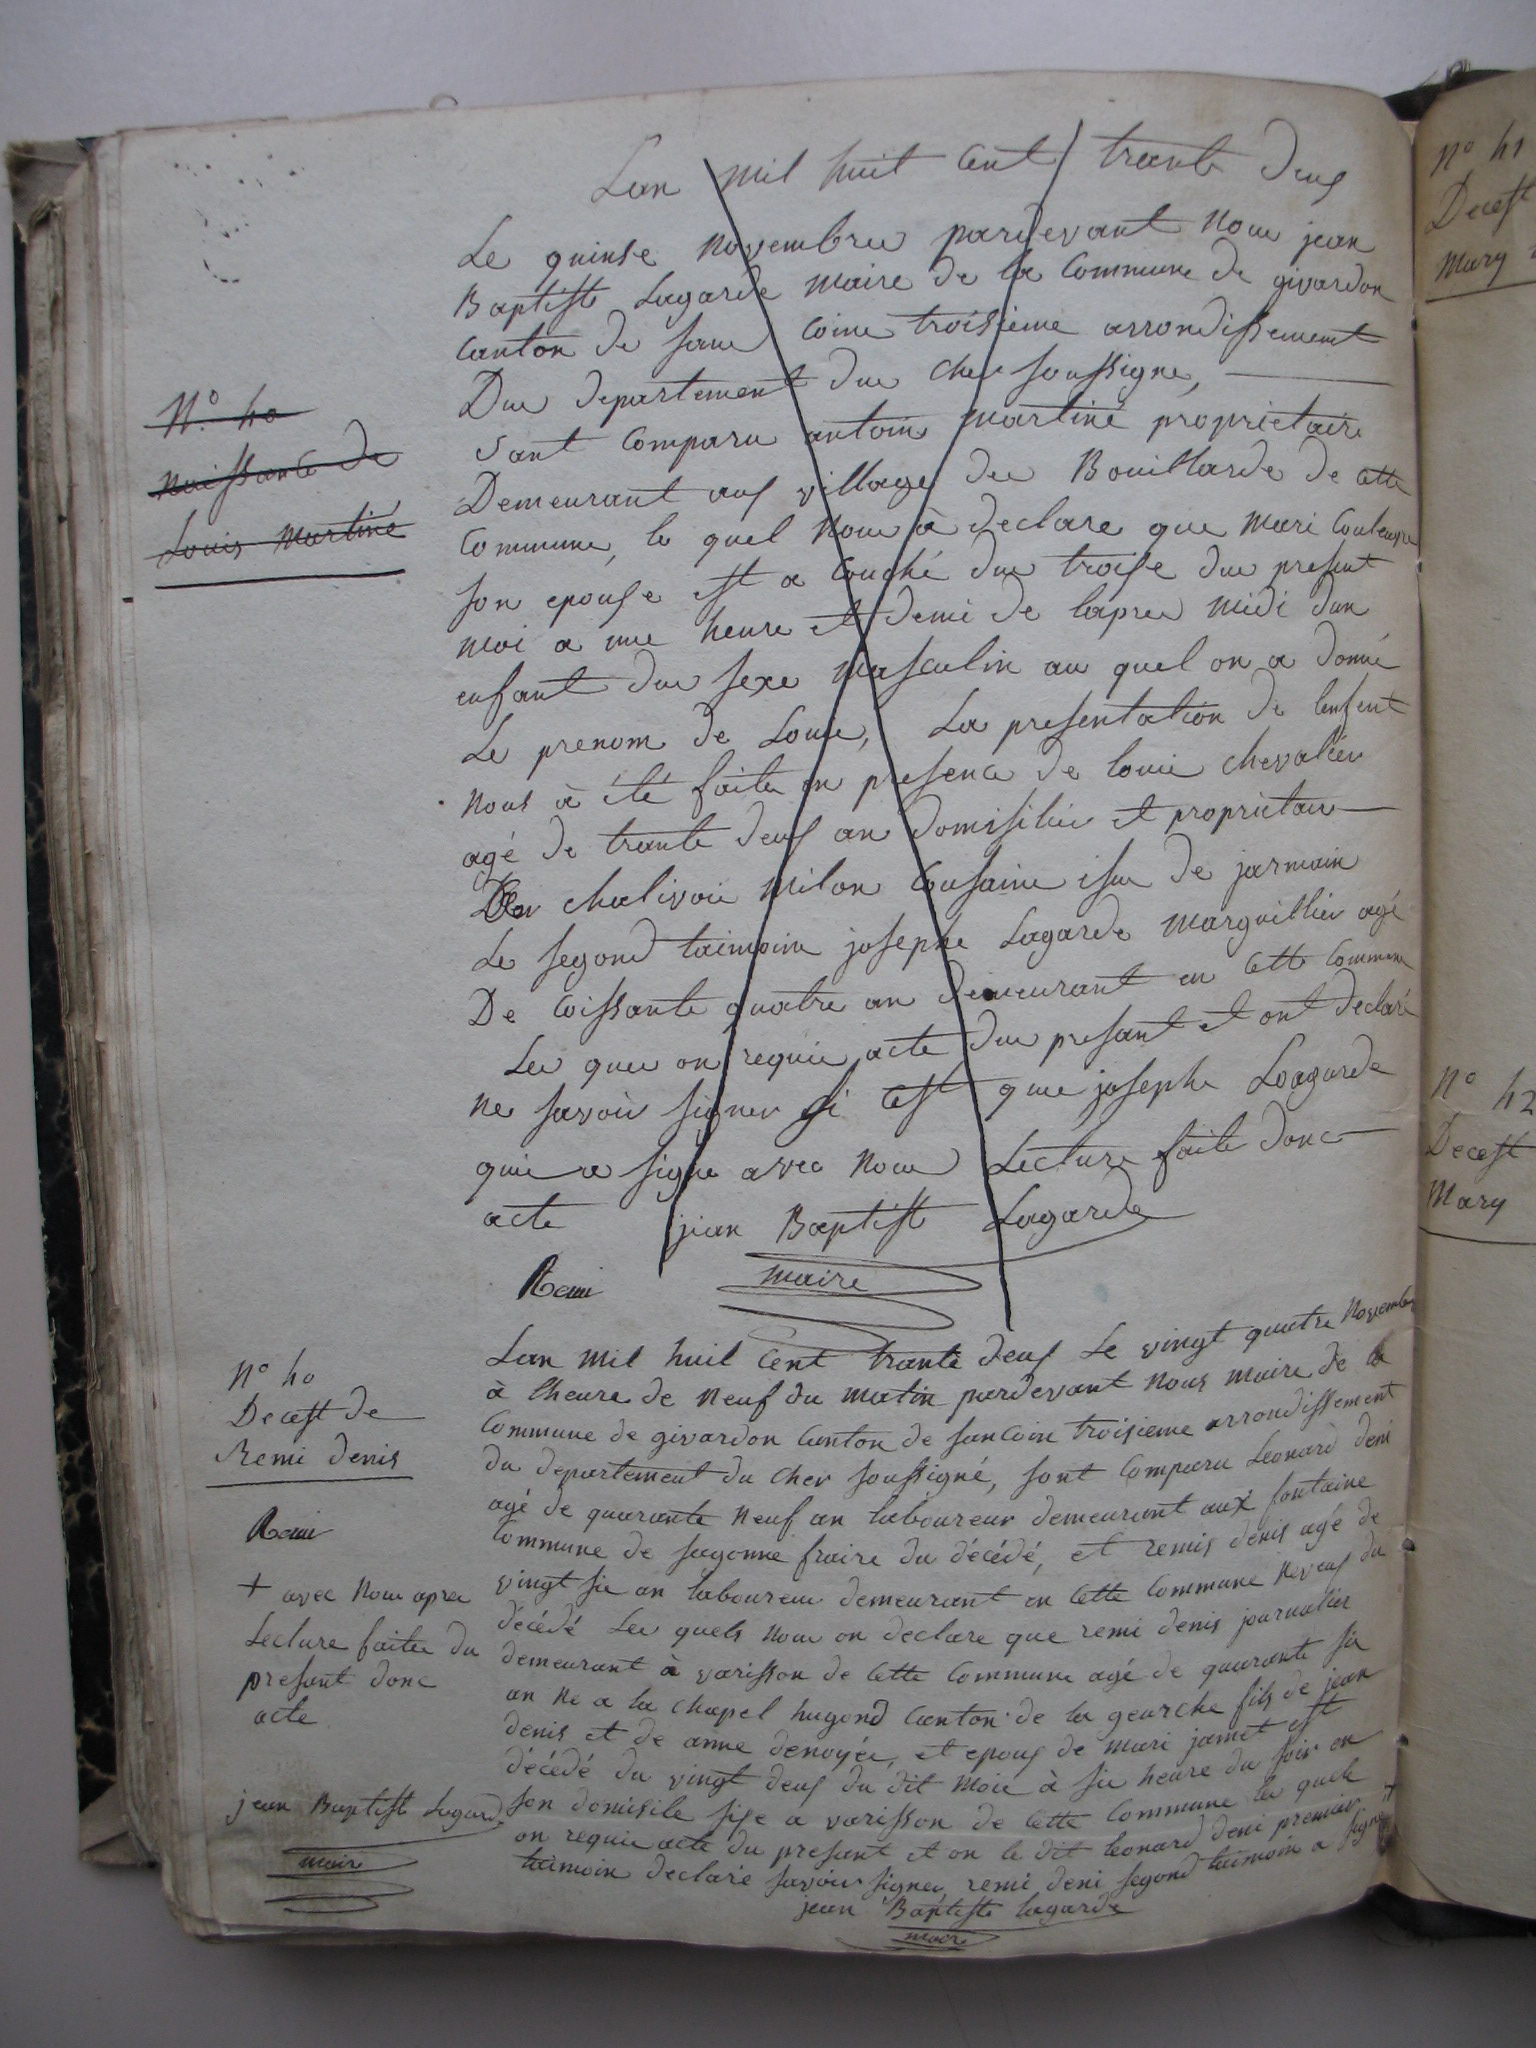 Lan mil huit Cent trante deux
Le quinse novembre pardevant nou jean
Baptiste Lagarde maire de la Commune de givardon
Canton de sanc coine troisieme arrondissement
Due departement due cher soussigne,
N.º 40
naissance de
Louis martiné
sont Comparu antoine martiné proprietaire
Demeurant aux village deu Bouillards de Cette
Commune, le quel nou à declare que mari
son epouse est a Couché due troise due present
moi a une heure et demi de lapreu midi dun
enfant due sexe masculin au quel on a donné
Le prenom de Loui, La presentation de lenfent
nous à été faite en presence de loui chevalier
agé de trante deux an domisilié et proprietair
De chalivoi milon Cousaine isue de jarmain
Le segond taimoine josephe Lagarde marguillier agé
De Coissante quatre an demeurant en Cette Commune
Les queu on requi acte due presant et ont declaré
ne savoir signer si Cest que josephe Lagarde
qui a signe avec nou Lecture faite donc
acte jean Baptiste Lagarde
maire
Remi
N° 40
Decest de
Remi denis
Lan mil huit Cent trante deux Le vingt quatre novembre
à lheure de neuf du matin pardevant nous maire de la
Commune de givardon Canton de sancoin troisieme arrondissement
du departement du cher soussigné, sont Comparu Leonard deni
agé de quarante neuf an laboureur demeurant aux fontaine
Commune de sagonne fraire du décédé, et remis denis agé de
vingt six an laboureur demeurant en Cette Commune neveux du
décédé Les quels nou on declare que remi denis journalier
demeurant à varisson de Cette Commune agé de quarante six
an ne a la chapel hugond Canton de la geurche fils de jean
denis et de anne denoyés, et epoux de mari jamet est
décédé du vingt deux du dit moi à six heure du soir en
son domisile sise a varisson de Cette Commune les quels
on requi acte du presant et on le dit leonard deni premier
taimoin declaré savoir signer, remi deni segond taimoin a signe +
jean Baptiste lagarde
maire
Remi
+ avec nou aprec
Lecture faite du
presant donc
acte
jean Baptiste Lagard
maire
N° 41
Decest
Mary
N° 42
Decest
Mary